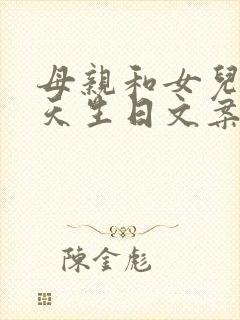 母親和女兒
天生日文案
陳金彪